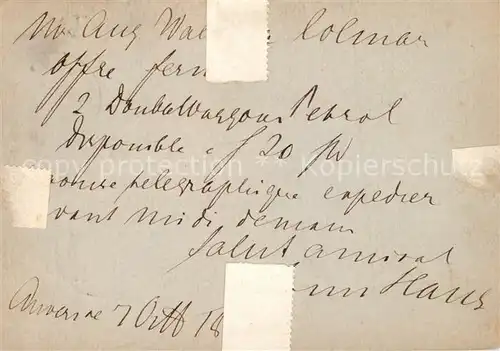 Mr Aug Wal Colmar
offre ferm
2 Doubelwargons Petrol
disponible a f 20 pr
telegraphique expedier
vant midi demain
Salut amical
Haus
Anversne 7 Octb 18
copyright protection Kopierschutz